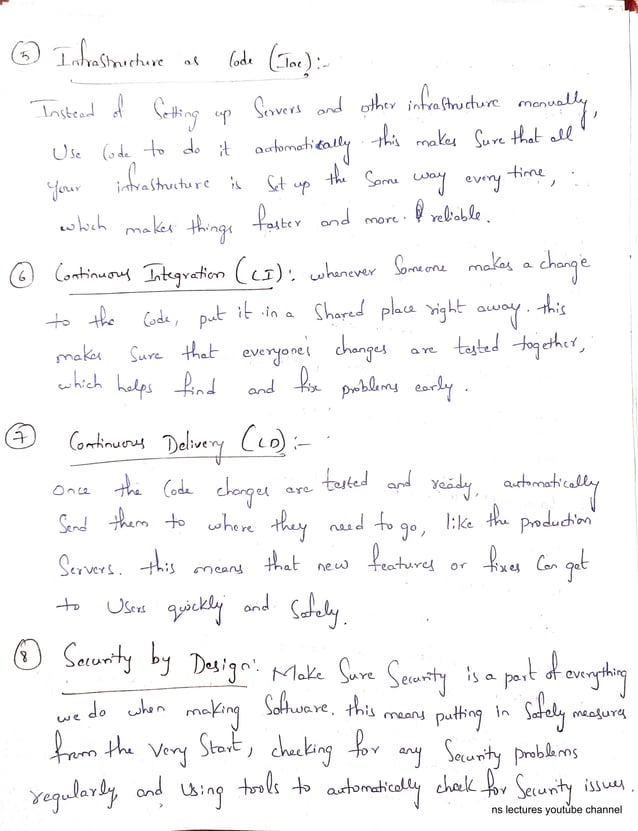 ⑤ Infrastructure as Code (Iac):-
Instead of Setting up Servers and other infrastructure manually,
Use Code to do it automatically. this makes Sure that all
your infrastructure is Set up the Same way every time,
which makes things faster and more reliable.
⑥ Continuous Integration (CI): whenever Someone makes a change
to the Code, put it in a Shared place right away. this
makes Sure that everyone's changes are tested together,
which helps find and fix problems early.
⑦ Continuous Delivery (CD):-
Once the Code changes are tested and ready, automatically
Send them to where they need to go, like the production
Servers. this means that new features or fixes Can get
to Users quickly and Safely.
⑧ Security by Design: Make Sure Security is a part of everything
we do when making Software. this means putting in Safety measures
from the Very Start, checking for any Security problems
regularly, and Using tools to automatically check for Security issues.
ns lectures youtube channel